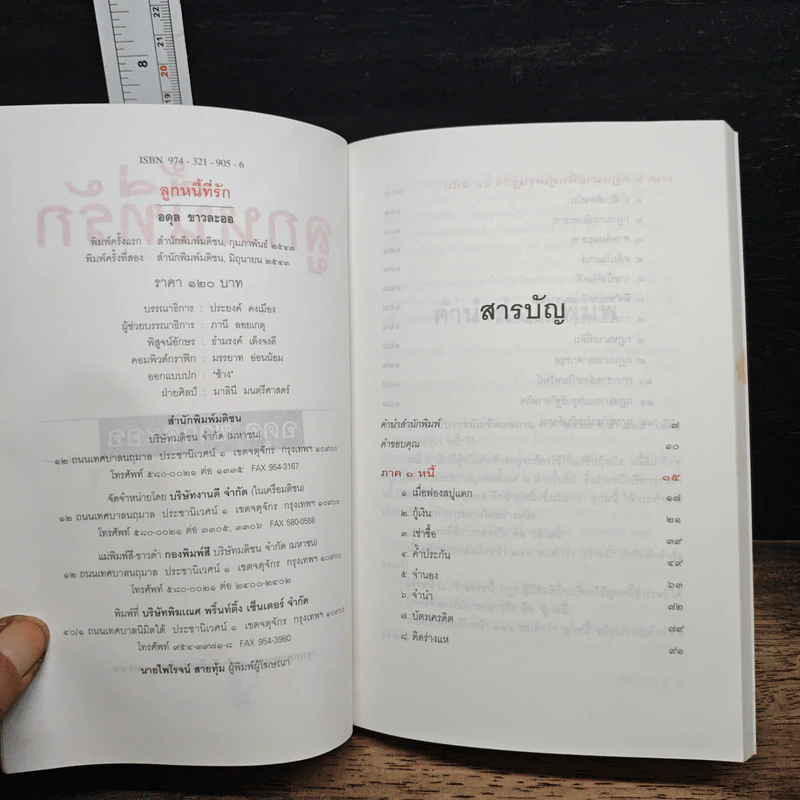 8
22
21
20
19
ISBN 974 - 321 - 905 - 6
ลูกหนี้ที่รัก
อดุล ขาวละออ
พิมพ์ครั้งแรก : สำนักพิมพ์มติชน, กุมภาพันธ์ ๒๕๔๓
พิมพ์ครั้งที่สอง : สำนักพิมพ์มติชน, มิถุนายน ๒๕๔๓
ราคา ๑๒๐ บาท
บรรณาธิการ : ประยงค์ คงเมือง
ผู้ช่วยบรรณาธิการ : ภานี ลอยเกตุ
พิสูจน์อักษร : ธำมรงค์ เต็งจงดี
คอมพิวต์กราฟิก : มรรยาท อ่อนน้อม
ออกแบบปก : "ช้าง"
ฝ่ายศิลป์ : มาลินี มนตรีศาสตร์
สำนักพิมพ์มติชน
บริษัทมติชน จำกัด (มหาชน)
๑๒ ถนนเทศบาลนฤมาล ประชานิเวศน์ ๑ เขตจตุจักร กรุงเทพฯ ๑๐๙๐๐
โทรศัพท์ ๕๘๐-๐๐๒๑ ต่อ ๑๒๓๕ FAX 954-3167
จัดจำหน่ายโดย บริษัทงานดี จำกัด (ในเครือมติชน)
๑๒ ถนนเทศบาลนฤมาล ประชานิเวศน์ ๑ เขตจตุจักร กรุงเทพฯ ๑๐๙๐๐
โทรศัพท์ ๕๘๐-๐๐๒๑ ต่อ ๓๓๐๕, ๓๓๐๖ FAX 580-0558
แม่พิมพ์สี-ขาวดำ กองพิมพ์สี บริษัทมติชน จำกัด (มหาชน)
๑๒ ถนนเทศบาลนฤมาล ประชานิเวศน์ ๑ เขตจตุจักร กรุงเทพฯ ๑๐๙๐๐
โทรศัพท์ ๕๘๐-๐๐๒๑ ต่อ ๒๔๐๐-๒๔๐๒
พิมพ์ที่ บริษัทพิฆเณศ พริ้นท์ติ้ง เซ็นเตอร์ จำกัด
๔๐/๑ ถนนเทศบาลนิมิตใต้ ประชานิเวศน์ ๑ เขตจตุจักร กรุงเทพฯ ๑๐๙๐๐
โทรศัพท์ ๙๕๔-๓๙๗๑-๘ FAX 954-3960
นายไพโรจน์ สายทุ้ม ผู้พิมพ์ผู้โฆษณาฯ
สารบัญ
คำนำสำนักพิมพ์ ๗
คำขอบคุณ ๑๐
ภาค ๑ หนี้ ๑๕
๑. เมื่อฟองสบู่แตก ๑๗
๒. กู้เงิน ๒๑
๓. เช่าซื้อ ๓๙
๔. ค้ำประกัน ๔๙
๕. จำนอง ๖๓
๖. จำนำ ๗๒
๗. บัตรเครดิต ๗๙
๘. ติดร่างแห ๙๑